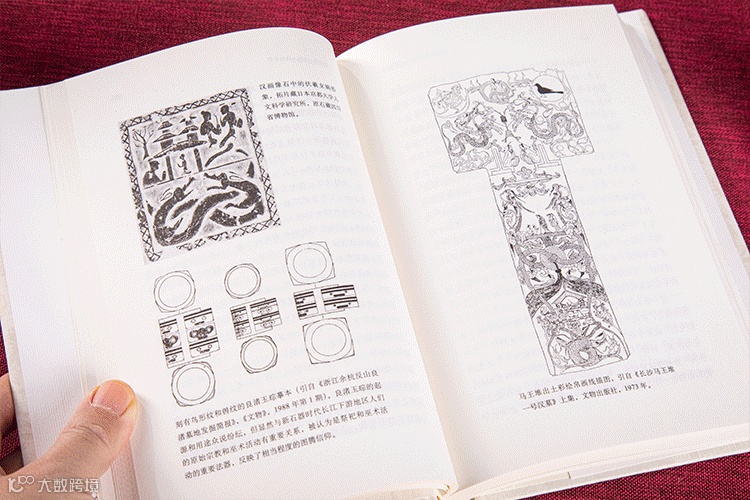 汉画像石中的伏羲女娲形
象，拓片藏日本京都大学人
文科学研究所，原石藏四川
省博物馆。
刻有鸟形纹和兽纹的良渚玉琮摹本（引自《浙江余杭反山良
渚墓地发掘简报》，《文物》，1988年第1期）。良渚玉琮的起
源和用途众说纷纭，但显然与新石器时代长江下游地区人们
的原始宗教和巫术活动有重要关系，被认为是祭祀和巫术活
动的重要法器，反映了相当程度的图腾信仰。
马王堆出土彩绘帛画线描图，引自《长沙马王堆
一号汉墓》上集，文物出版社，1973年。
大数跨境